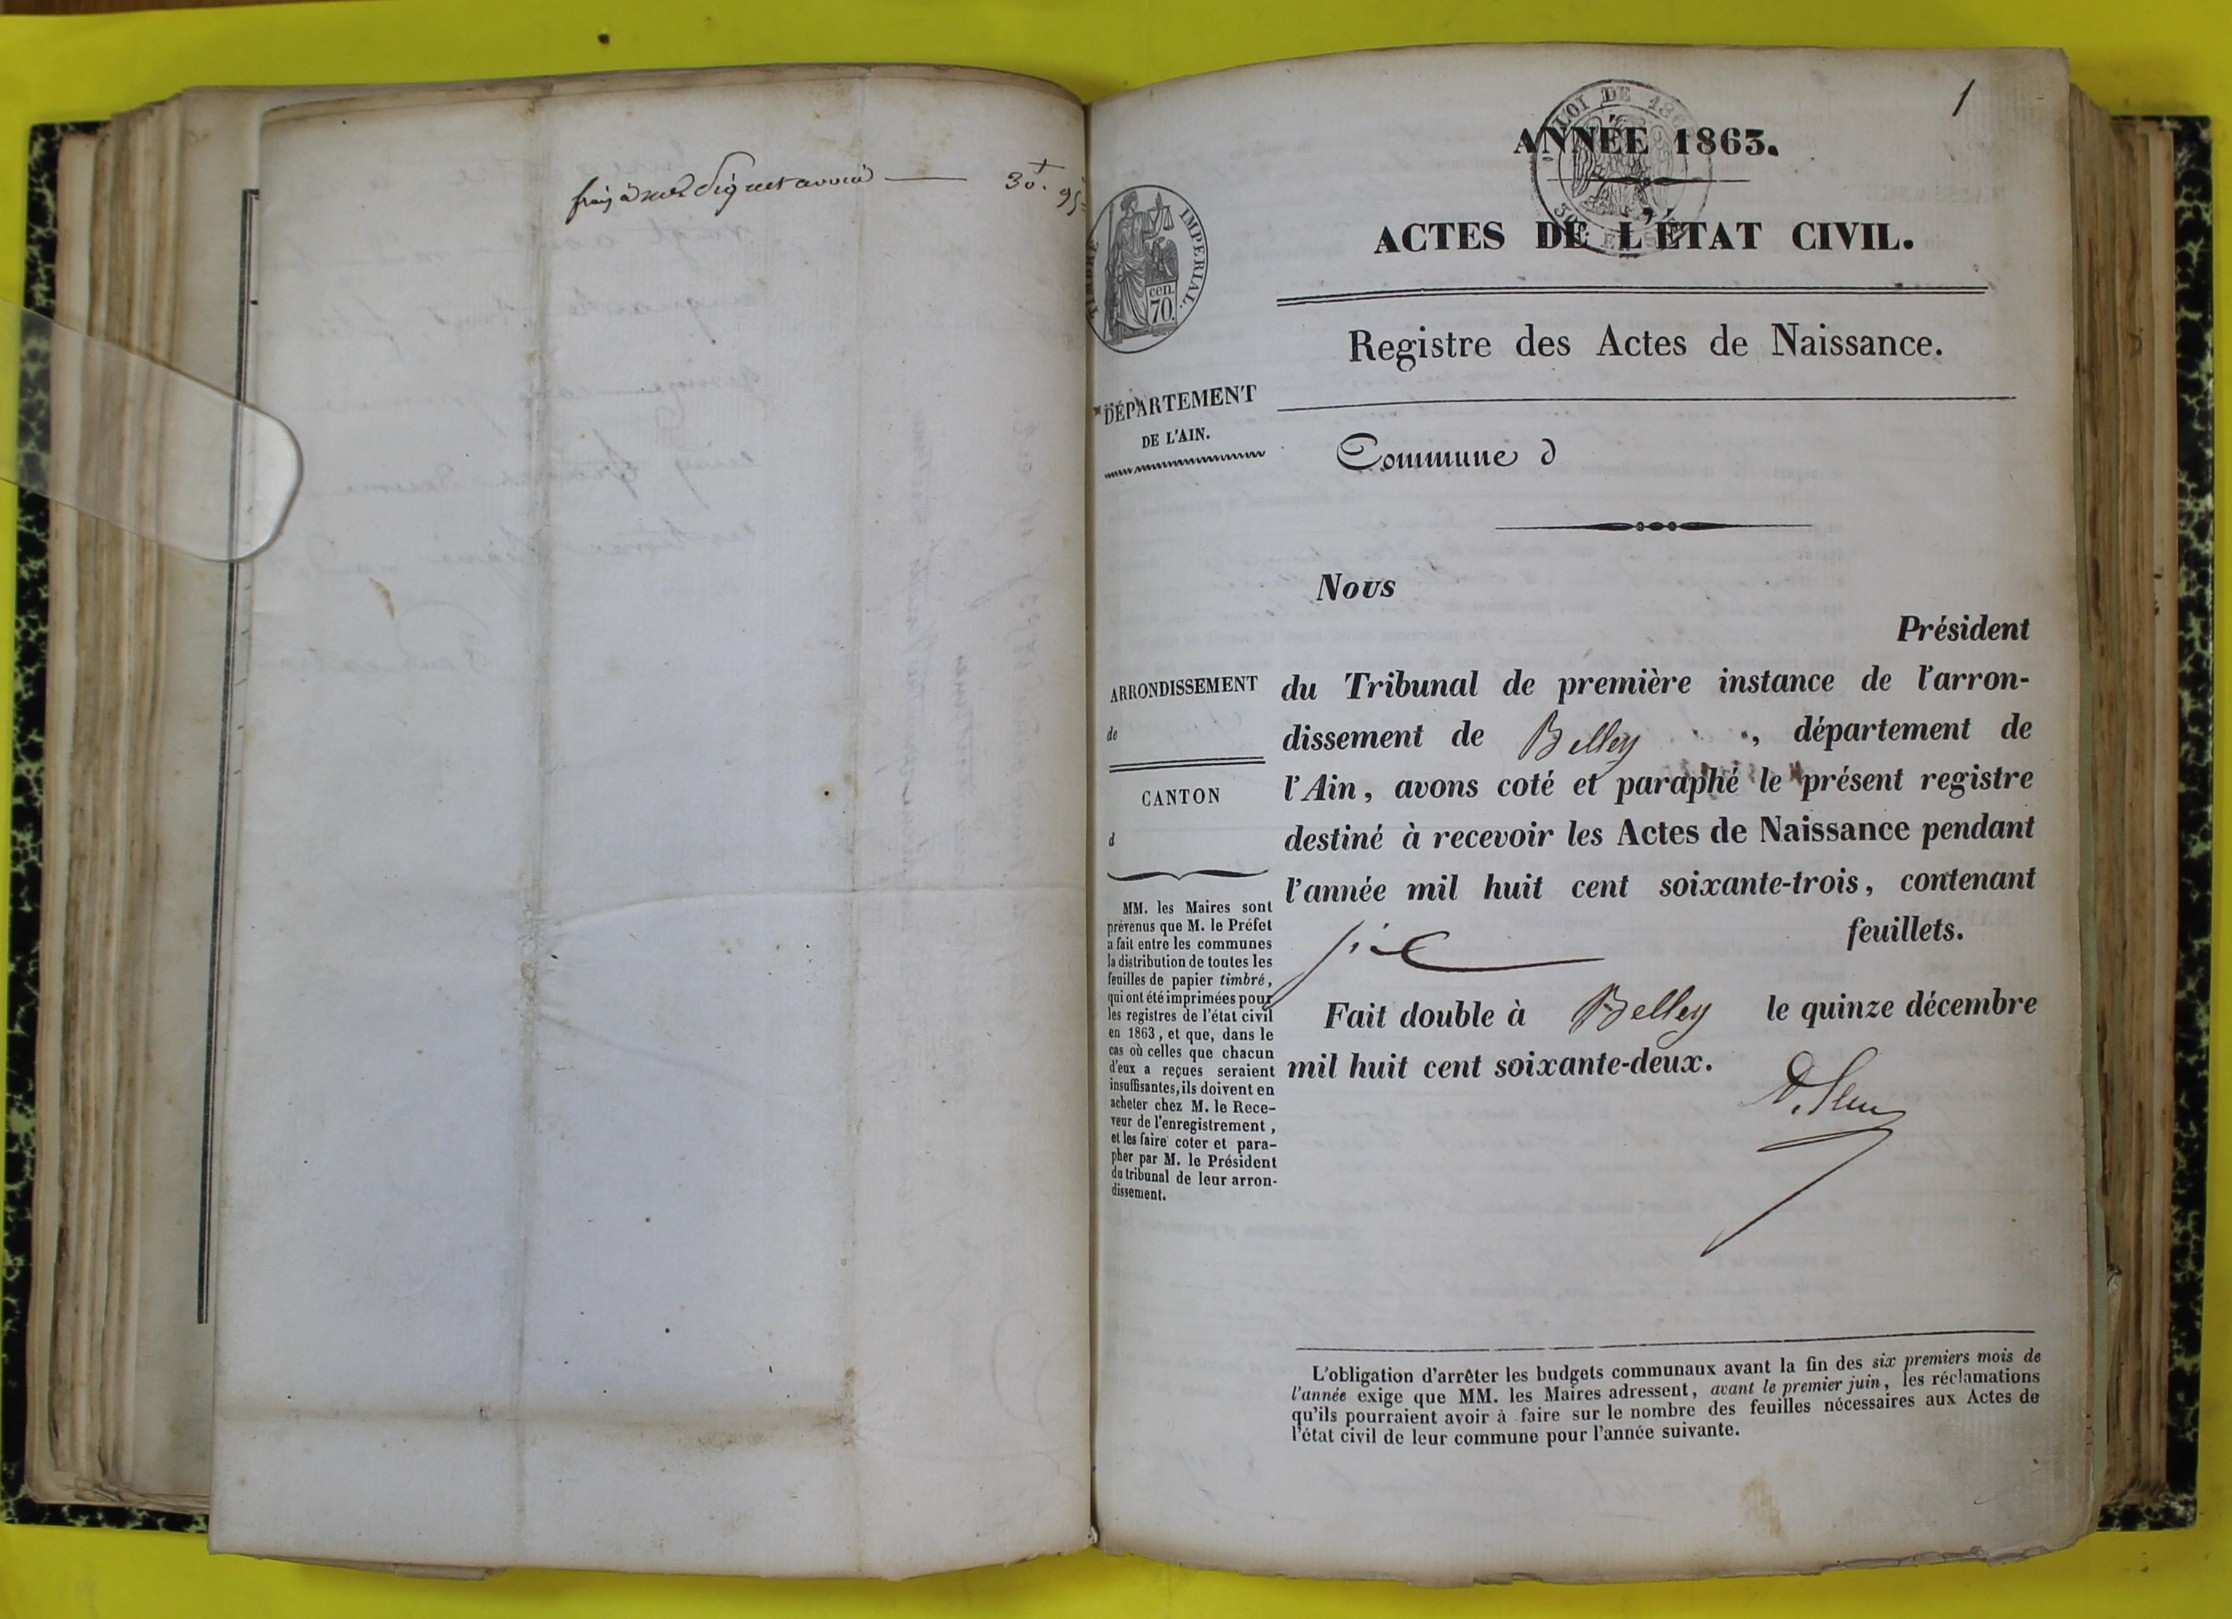 frais à
30. 95
1
LOI DE 186
ANNÉE 1863.
ACTES DE L'ÉTAT CIVIL.
TIMBRE IMPERIAL.
cen.
70.
Registre des Actes de Naissance.
DÉPARTEMENT
DE L'AIN.
Commune d
Nous
Président
ARRONDISSEMENT
de
CANTON
d
du Tribunal de première instance de l'arron-
dissement de Belley , département de
l'Ain, avons coté et paraphé le présent registre
destiné à recevoir les Actes de Naissance pendant
l'année mil huit cent soixante-trois, contenant
six feuillets.
Fait double à Belley le quinze décembre
mil huit cent soixante-deux.
MM. les Maires sont
prévenus que M. le Préfet
a fait entre les communes
la distribution de toutes les
feuilles de papier timbré,
qui ont été imprimées pour
les registres de l'état civil
en 1863, et que, dans le
cas où celles que chacun
d'eux a reçues seraient
insuffisantes, ils doivent en
acheter chez M. le Rece-
veur de l'enregistrement,
et les faire coter et para-
pher par M. le Président
du tribunal de leur arron-
dissement.
L'obligation d'arrêter les budgets communaux avant la fin des six premiers mois de
l'année exige que MM. les Maires adressent, avant le premier juin, les réclamations
qu'ils pourraient avoir à faire sur le nombre des feuilles nécessaires aux Actes de
l'état civil de leur commune pour l'année suivante.